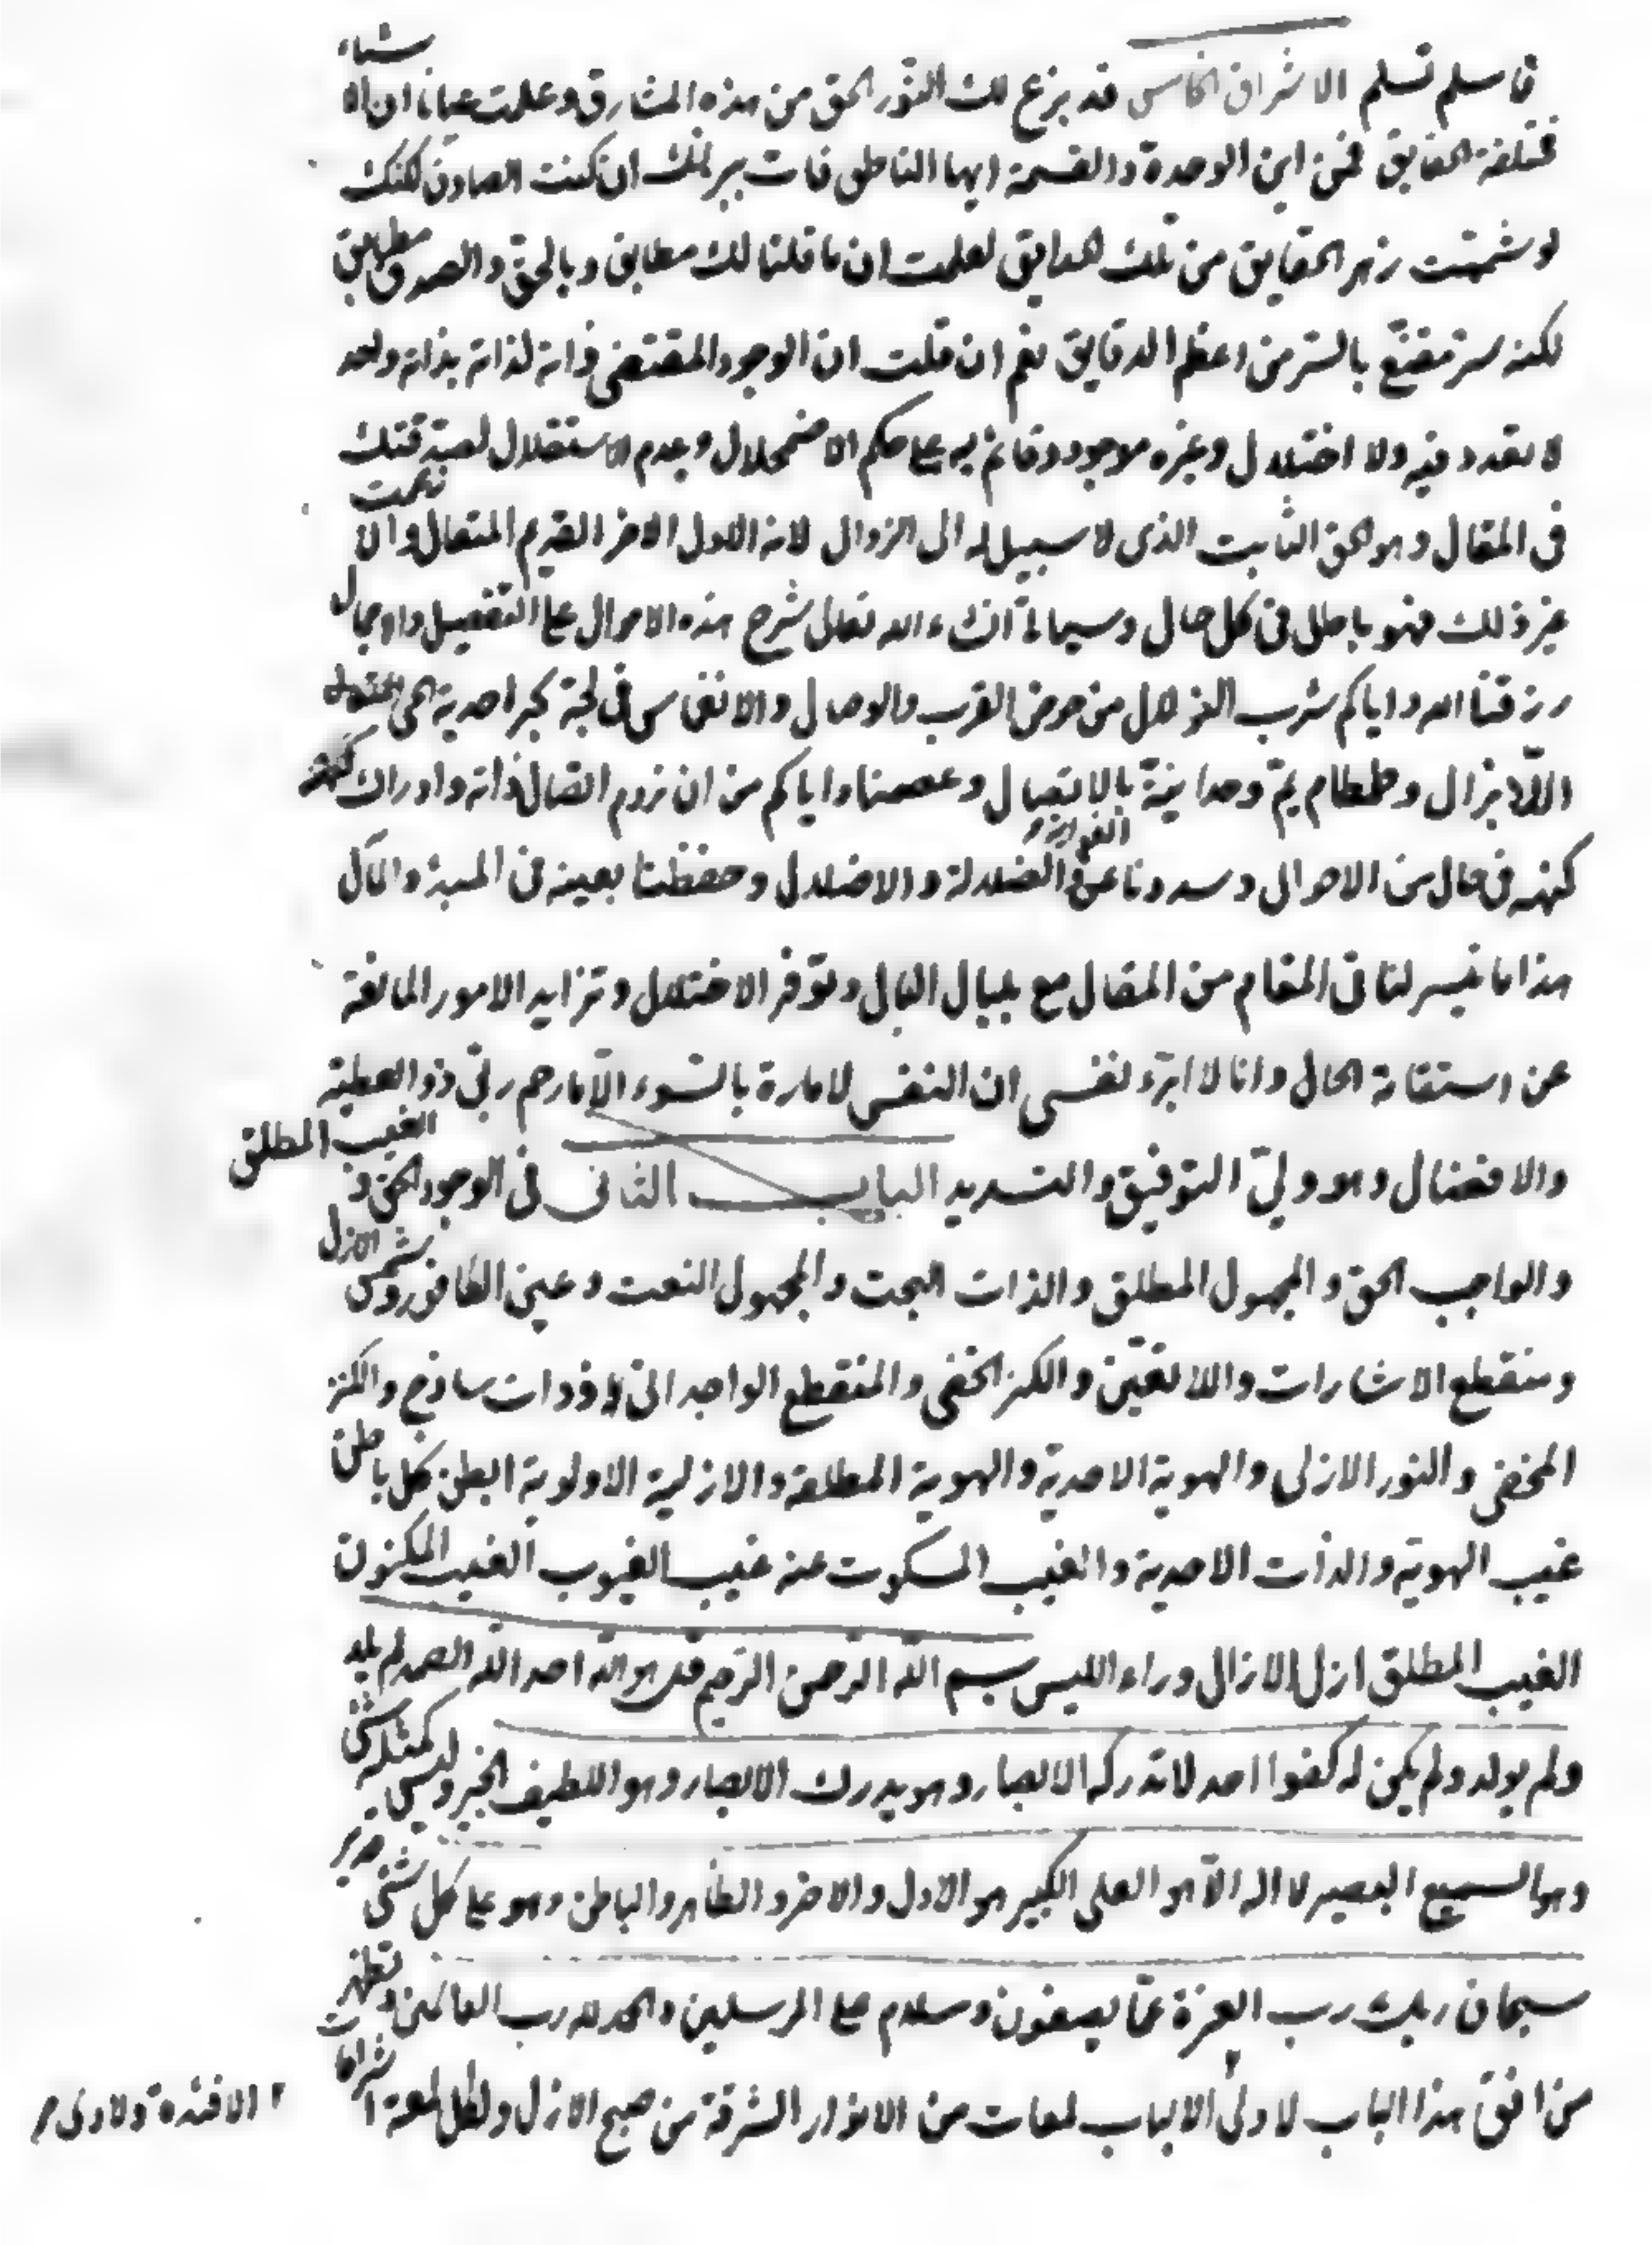 فاسلم تسلم الاشراق الخامس قد بزغ لك النور الحق من هذه المشارق وعلمت عيانا ان الاشياء
مختلفة الحقايق فمن اين الوحدة والقسمة ايها الناطق فات ببرهانك ان كنت الصادق لكنك
لو شممت زهر الحقايق من تلك الحدايق لعلمت ان ما قلنا لك مطابق وبالحق والصدق مطابق
لكنه سر مقنّع بالستر من اعظم الدقايق نعم ان قلت ان الوجود المقتضى ذاته لذاته بذاته واحد
لا تعدد فيه ولا اختلال وغيره موجود وقائم به على حكم الاضمحلال وعدم الاستقلال لصدقتك
فى المقال وهو الحق الثابت الذى لا سبيل له الى الزوال لانه الاول الاخر القديم المتعال والا زعمت
غير ذلك فهو باطل فى كل حال وسياتى انشاء الله تعالى شرح هذه الاحوال على التفصيل والاجمال
رزقنا الله واياكم شرب الزلال من حوض القرب والوصال والانغماس فى لجة بحر احدية الحى المتعال
اللّا يزال وطمطام يمّ وحدانية وعصمنا واياكم من ان نروم اتصال ذاته وادراك
كنهه فى حال من الاحوال وسددنا عن الغواية والضلالة والاضلال وحفظنا بعينه فى المبدء والمآل
هذا ما تيسر لنا فى المقام من المقال مع بلبال البال وتوفر الاختلال وتزايد الامور المانعة
عن استقامة الحال وانا لا ابرّء نفسى ان النفس لامارة بالسّوء الّا ما رحم ربّى ذو العطية
والافضال وهو ولىّ التوفيق والتسديد الباب الثانى فى الوجود الحق و الغيب المطلق
والواجب الحق والمجهول المطلق والذات البحت والمجهول النعت وعين الكافور وشمس الازل
ومنقطع الاشارات واللاتعيّن والكنز الخفى والمنقطع الوجدانى وذات ساذج والكنز
المخفى والنور الازلى والهوية الاحدية والهوية المطلقة والازلية الاولوية ابطن كل باطن
غيب الهوية والذات الاحدية والغيب المسكوت عنه غيب الغيوب الغيب المكنون
الغيب المطلق ازل الازال وراء الليس بسم الله الرحمن الرحيم قل هو الله احد الله الصمد لم يلد
ولم يولد ولم يكن له كفوا احد لا تدركه الابصار وهو يدرك الابصار وهو اللطيف الخبير وليس كمثله شئ
وهو السميع البصير لا اله الّا هو العلى الكبير هو الاول والاخر والظاهر والباطن وهو على كل شئ قدير
سبحان ربك رب العزة عمّا يصفون وسلام على المرسلين والحمد لله رب العالمين وتظهر
من افق هذا الباب لاولى الالباب لمعات من الانوار المشرقة من صبح الازل ولكل لمعة اشراقات
الافئدة ولاولى